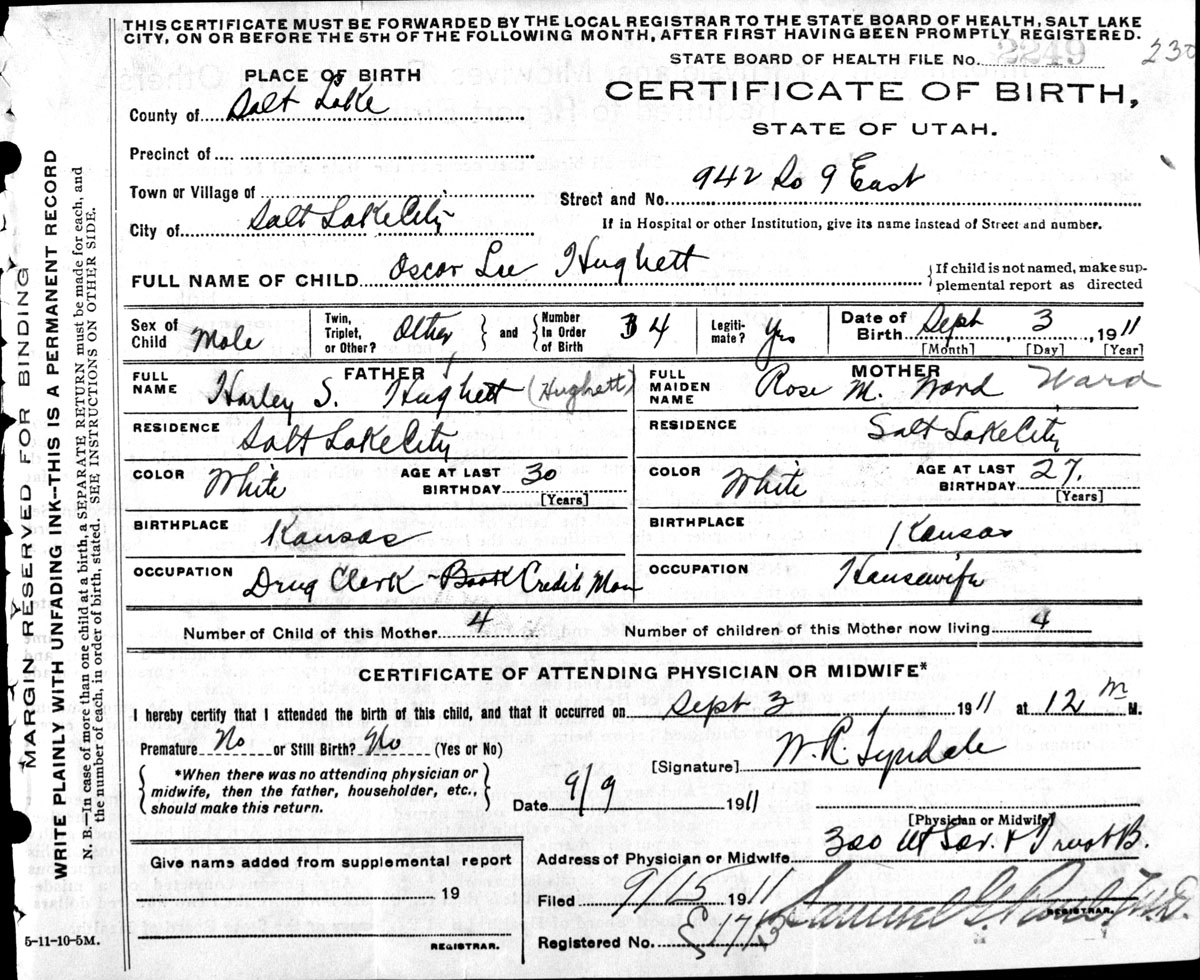 THIS CERTIFICATE MUST BE FORWARDED BY THE LOCAL REGISTRAR TO THE STATE BOARD OF HEALTH, SALT LAKE
CITY, ON OR BEFORE THE 5TH OF THE FOLLOWING MONTH, AFTER FIRST HAVING BEEN PROMPTLY REGISTERED.
STATE BOARD OF HEALTH FILE No. 2249 230
PLACE OF BIRTH
CERTIFICATE OF BIRTH,
STATE OF UTAH.
County of Salt Lake
Precinct of
Town or Village of
Street and No. 942 So 9 East
City of Salt Lake City
If in Hospital or other Institution, give its name instead of Street and number.
FULL NAME OF CHILD Oscar Lee Hughett
If child is not named, make sup-
plemental report as directed
Sex of Child Male
Twin, Triplet, or Other? Other and Number In Order of Birth 4
Legiti-mate? Yes
Date of Birth Sept 3, 1911
[Month] [Day] [Year]
FATHER
FULL NAME Harley S. Hughett (Hughett)
RESIDENCE Salt Lake City
COLOR White AGE AT LAST BIRTHDAY 30
[Years]
BIRTHPLACE Kansas
OCCUPATION Drug Clerk - Book Credit Man
MOTHER
FULL MAIDEN NAME Rose M. Ward Ward
RESIDENCE Salt Lake City
COLOR White AGE AT LAST BIRTHDAY 27.
[Years]
BIRTHPLACE Kansas
OCCUPATION Housewife
Number of Child of this Mother 4 Number of children of this Mother now living 4
CERTIFICATE OF ATTENDING PHYSICIAN OR MIDWIFE*
I hereby certify that I attended the birth of this child, and that it occurred on Sept 3 1911 at 12 M M.
Premature No or Still Birth? No (Yes or No)
*When there was no attending physician or
midwife, then the father, householder, etc.,
should make this return.
[Signature] W. R. Tyndale
Date 9/9 1911
[Physician or Midwife]
Give name added from supplemental report
19
REGISTRAR.
Address of Physician or Midwife 300 Ut Sav. & Trust B.
Filed 9/15 1911
REGISTRAR.
Registered No. E 1713
5-11-10-5M.
MARGIN RESERVED FOR BINDING
WRITE PLAINLY WITH UNFADING INK--THIS IS A PERMANENT RECORD
N. B.--In case of more than one child at a birth, a SEPARATE RETURN must be made for each, and
the number of each, in order of birth, stated. SEE INSTRUCTIONS ON OTHER SIDE.